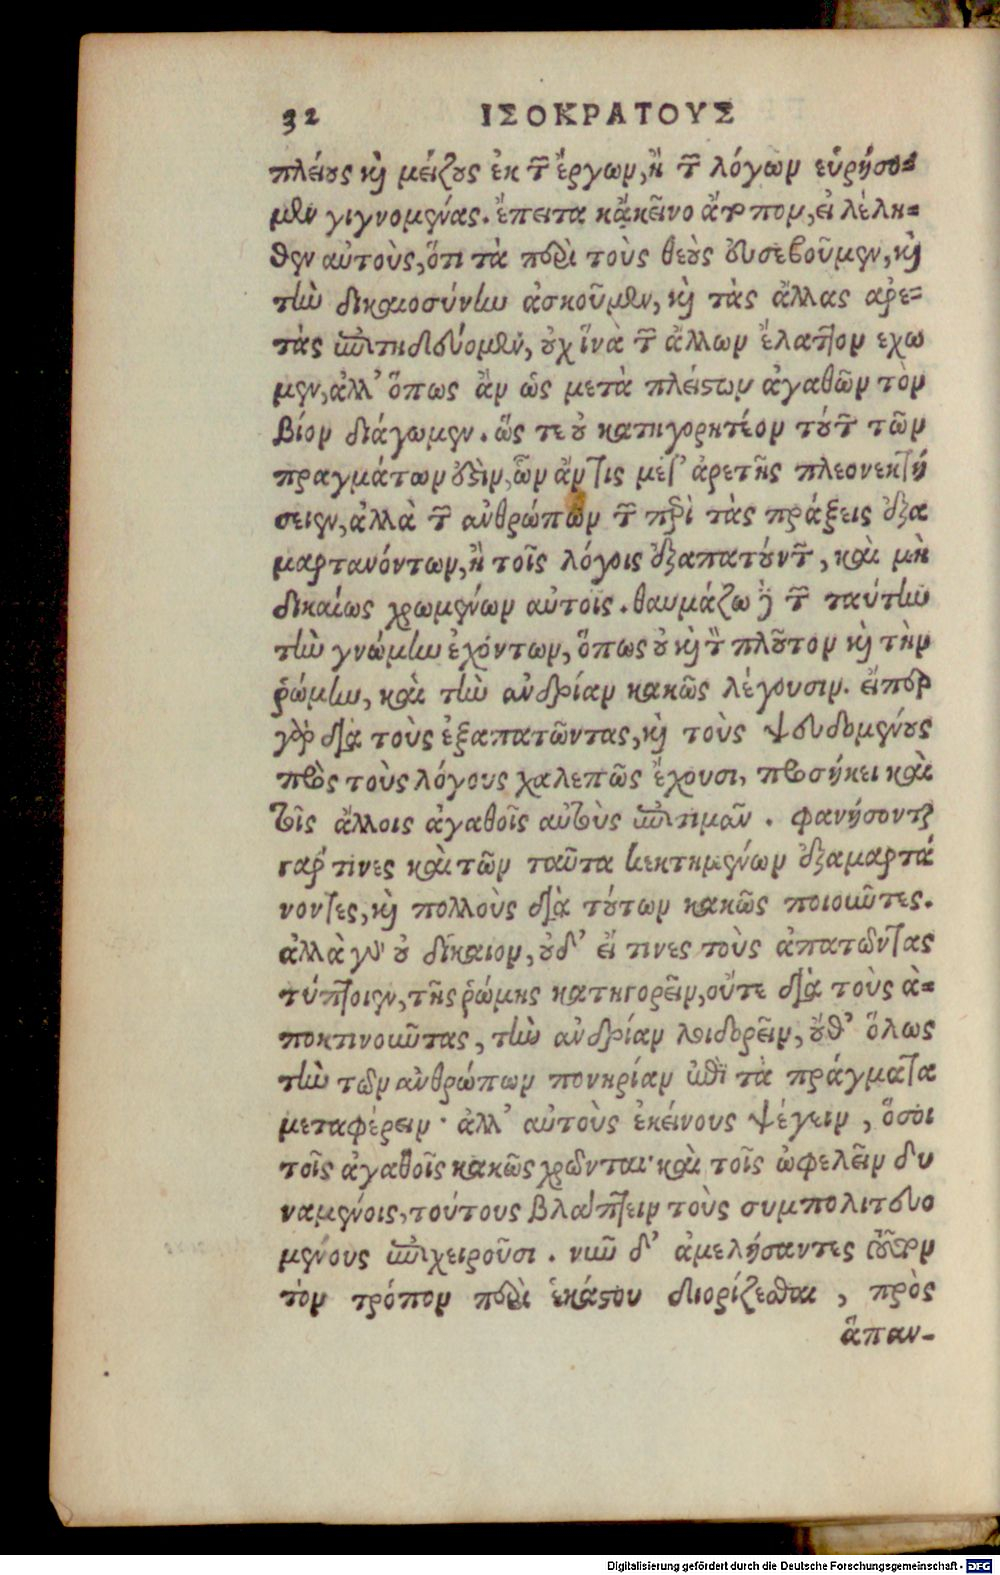 32 ΙΣΟΚΡΑΤΟΥΣ
πλείους καὶ μείζους ἐκ τῶν ἔργων, ἢ τῶν λόγων εὑρήσο=
μεν γιγνομένας. ἔπειτα κἀκεῖνο ἄτοπον, εἰ λέλη=
θεν αὐτοὺς, ὅτι τὰ περὶ τοὺς θεοὺς εὐσεβοῦμεν, καὶ
τὴν δικαιοσύνην ἀσκοῦμεν, καὶ τὰς ἄλλας ἀρε=
τὰς ἐπιτηδεύομεν, οὐχ ἵνα τῶν ἄλλων ἔλαττον ἔχω
μεν, ἀλλ' ὅπως ἂν ὡς μετὰ πλείστων ἀγαθῶν τὸν
βίον διάγωμεν. ὥς τε οὐ κατηγορητέον τούτων τῶν
πραγμάτων οὐδὲν, ὧν ἄν τις μετ' ἀρετῆς πλεονεκτή
σειεν, ἀλλὰ τῶν ἀνθρώπων τῶν περὶ τὰς πράξεις ἐξα
μαρτανόντων, ἢ τοῖς λόγοις ἐξαπατούντων, καὶ μὴ
δικαίως χρωμένων αὐτοῖς. θαυμάζω δὲ τῶν ταύτην
τὴν γνώμην ἐχόντων, ὅπως οὐ καὶ τὸν πλοῦτον καὶ τὴν
ῥώμην, καὶ τὴν ἀνδρίαν κακῶς λέγουσιν. εἴπερ
γὰρ διὰ τοὺς ἐξαπατῶντας, καὶ τοὺς ψευδομένους
πρὸς τοὺς λόγους χαλεπῶς ἔχουσι, προσήκει καὶ
τοῖς ἄλλοις ἀγαθοῖς αὐτοὺς ἐπιτιμᾶν. φανήσονται
γάρ τινες καὶ τῶν ταῦτα κεκτημένων ἐξαμαρτά
νοντες, καὶ πολλοὺς διὰ τούτων κακῶς ποιοῦντες.
ἀλλὰ γὰρ οὐ δίκαιον, οὐδ' εἴ τινες τοὺς ἀπατῶντας
τύπτοιεν, τῆς ῥώμης κατηγορεῖν, οὔτε διὰ τοὺς ἀ=
ποκτινοῦντας, τὴν ἀνδρίαν λοιδορεῖν, οὔθ' ὅλως
τὴν τῶν ἀνθρώπων πονηρίαν ἐπὶ τὰ πράγματα
μεταφέρειν· ἀλλ' αὐτοὺς ἐκείνους ψέγειν, ὅσοι
τοῖς ἀγαθοῖς κακῶς χρῶνται· καὶ τοῖς ὠφελεῖν δυ
ναμένοις, τούτους βλάπτειν τοὺς συμπολιτευο
μένους ἐπιχειροῦσι. νῦν δ' ἀμελήσαντες τοῦτον
τὸν τρόπον περὶ ἑκάστου διορίζεσθαι, πρὸς
ἅπαν-
Digitalisierung gefördert durch die Deutsche Forschungsgemeinschaft - DFG